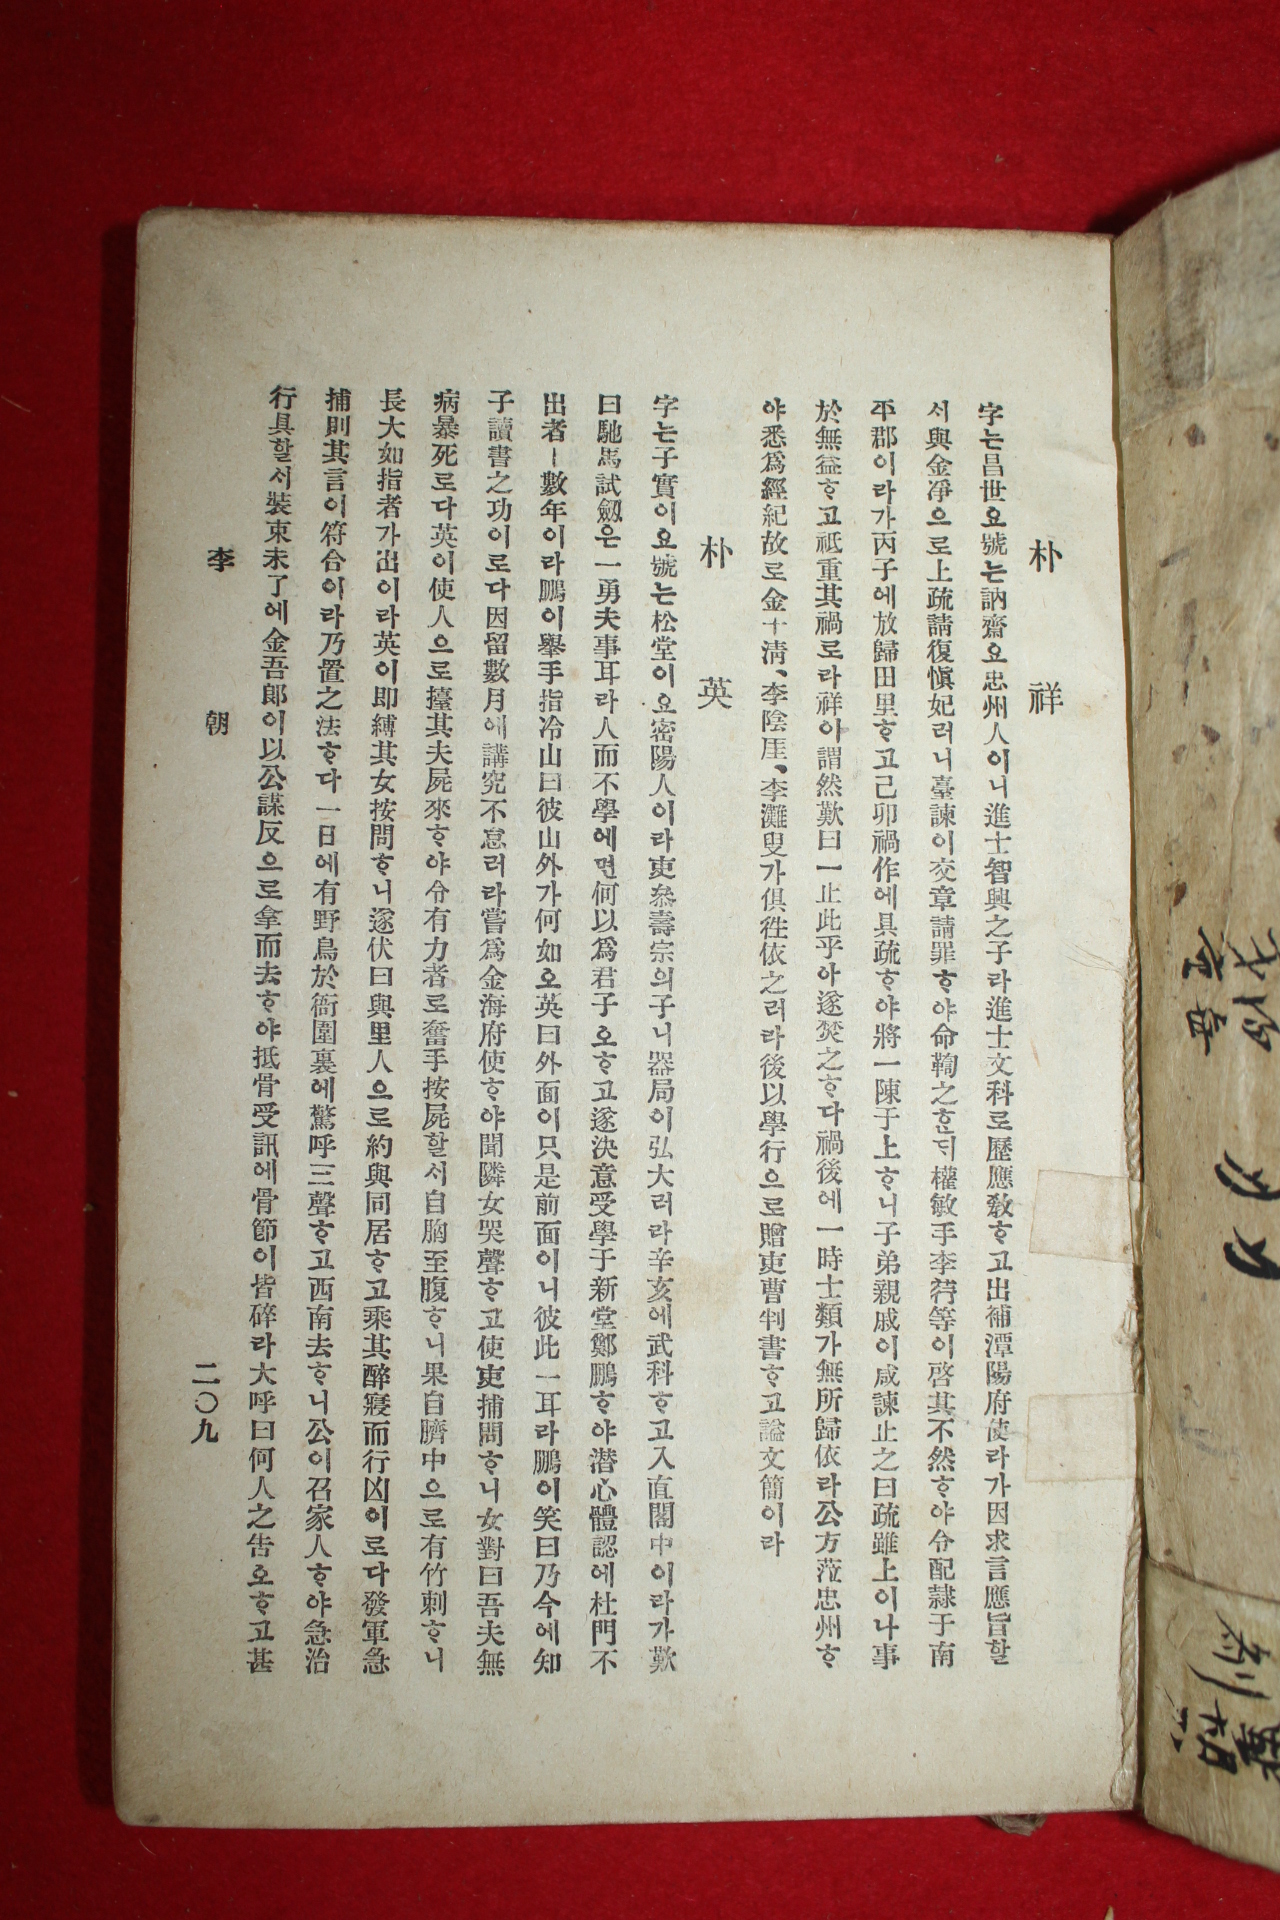 朴祥
字는昌世요號는訥齋요忠州人이니進士智興之子라進士文科로歷應敎ᄒᆞ고出補潭陽府使라가因求言應旨할
서與金凈으로上疏請復愼妃러니臺諫이交章請罪ᄒᆞ야命鞫之ᄒᆞᆫᄃᆡ權敏手李荇等이啓其不然ᄒᆞ야令配隷于南
平郡이라가丙子에放歸田里ᄒᆞ고己卯禍作에具疏ᄒᆞ야將一陳于上ᄒᆞ니子弟親戚이咸諫止之曰疏雖上이나事
於無益ᄒᆞ고祗重其禍로라祥이謂然歎曰一止此乎아遂焚之ᄒᆞ다禍後에一時士類가無所歸依라公方莅忠州ᄒᆞ
야悉爲經紀故로金十淸、李陰厓、李灘叟가俱徃依之러라後以學行으로贈吏曹判書ᄒᆞ고謚文簡이라
朴英
字는子實이요號는松堂이요密陽人이라吏叅壽宗의子니器局이弘大러라辛亥에武科ᄒᆞ고入直閣中이라가歎
曰馳馬試劒은一勇夫事耳라人而不學에면何以爲君子오ᄒᆞ고遂決意受學于新堂鄭鵬ᄒᆞ야潛心體認에杜門不
出者ㅣ數年이라鵬이擧手指冷山曰彼山外가何如오英曰外面이只是前面이니彼此一耳라鵬이笑曰乃今에知
子讀書之功이로다因留數月에講究不怠러라嘗爲金海府使ᄒᆞ야聞隣女哭聲ᄒᆞ고使吏捕問ᄒᆞ니女對曰吾夫無
病暴死로다英이使人으로擡其夫屍來ᄒᆞ야令有力者로奮手按屍할서自胸至腹ᄒᆞ니果自臍中으로有竹刺ᄒᆞ니
長大如指者가出이라英이即縛其女按問ᄒᆞ니遂伏曰與里人으로約與同居ᄒᆞ고乘其醉寢而行凶이로다發軍急
捕則其言이符合이라乃置之法ᄒᆞ다一日에有野鳥於衙園裏에驚呼三聲ᄒᆞ고西南去ᄒᆞ니公이召家人ᄒᆞ야急治
行具할서裝束未了에金吾郞이以公謀反으로拿而去ᄒᆞ야抵骨受訊에骨節이皆碎라大呼曰何人之告오ᄒᆞ고甚
李朝
二〇九